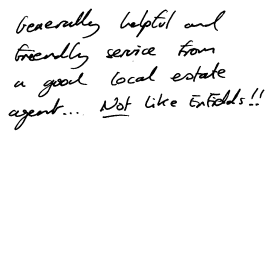 Generally helpful and
friendly service from
a good local estate
agent... Not like Enfields!!